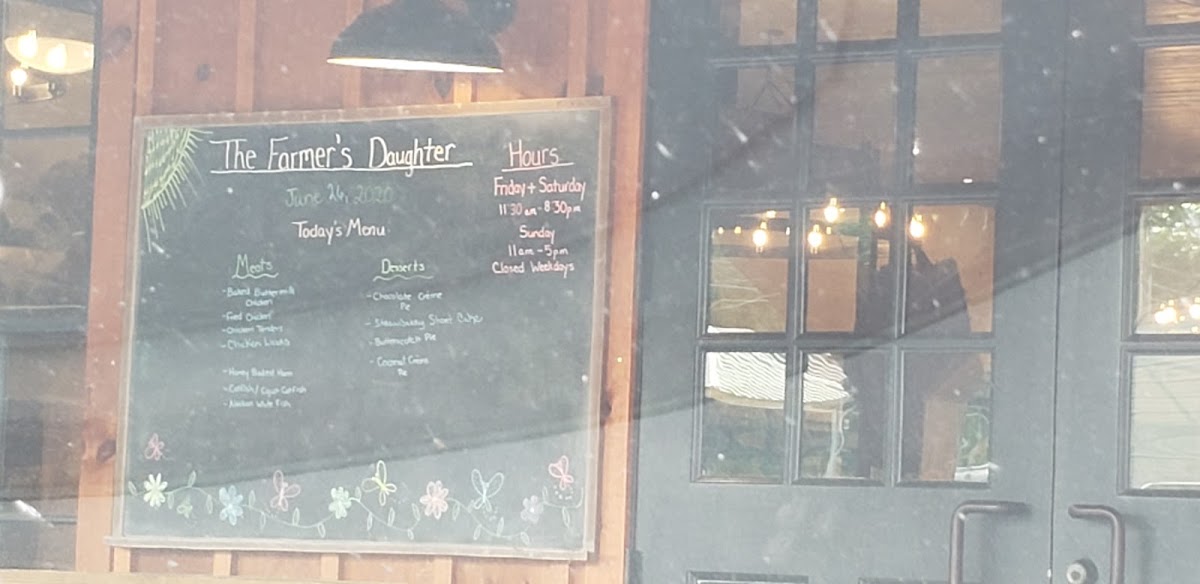 The Farmer's Daughter
June 26, 2020
Today's Menu
Meats
- Baked Buttermilk
Chicken
- Fried Chicken
- Chicken Tenders
- Chicken Livers
- Honey Baked Ham
- Catfish / Cajun Catfish
- Alaskan White Fish
Desserts
- Chocolate Crème
Pie
- Strawberry Short Cake
- Butterscotch Pie
- Coconut Crème
Pie
Hours
Friday + Saturday
11:30 am - 8:30 pm
Sunday
11 am - 5 pm
Closed Weekdays